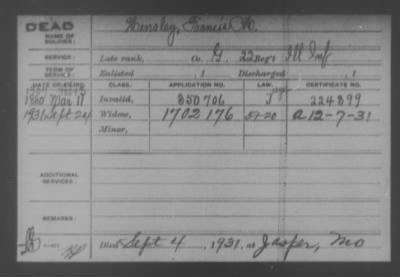 DEAD
NAME OF SOLDIER: Hensley, Francis M.
SERVICE: Late rank, Co. G, 22 Reg't Ill Inf
TERM OF SERVICE: Enlisted , 1 Discharged , 1
DATE OF FILING. CLASS. APPLICATION NO. LAW. CERTIFICATE NO.
1880 Mar 11 Invalid, 350706 224899
1931 Sept 24 Widow, 1702176 A 12-7-31
Minor,
ADDITIONAL SERVICES:
REMARKS:
Died Sept 4, 1931, at Jasper, Mo